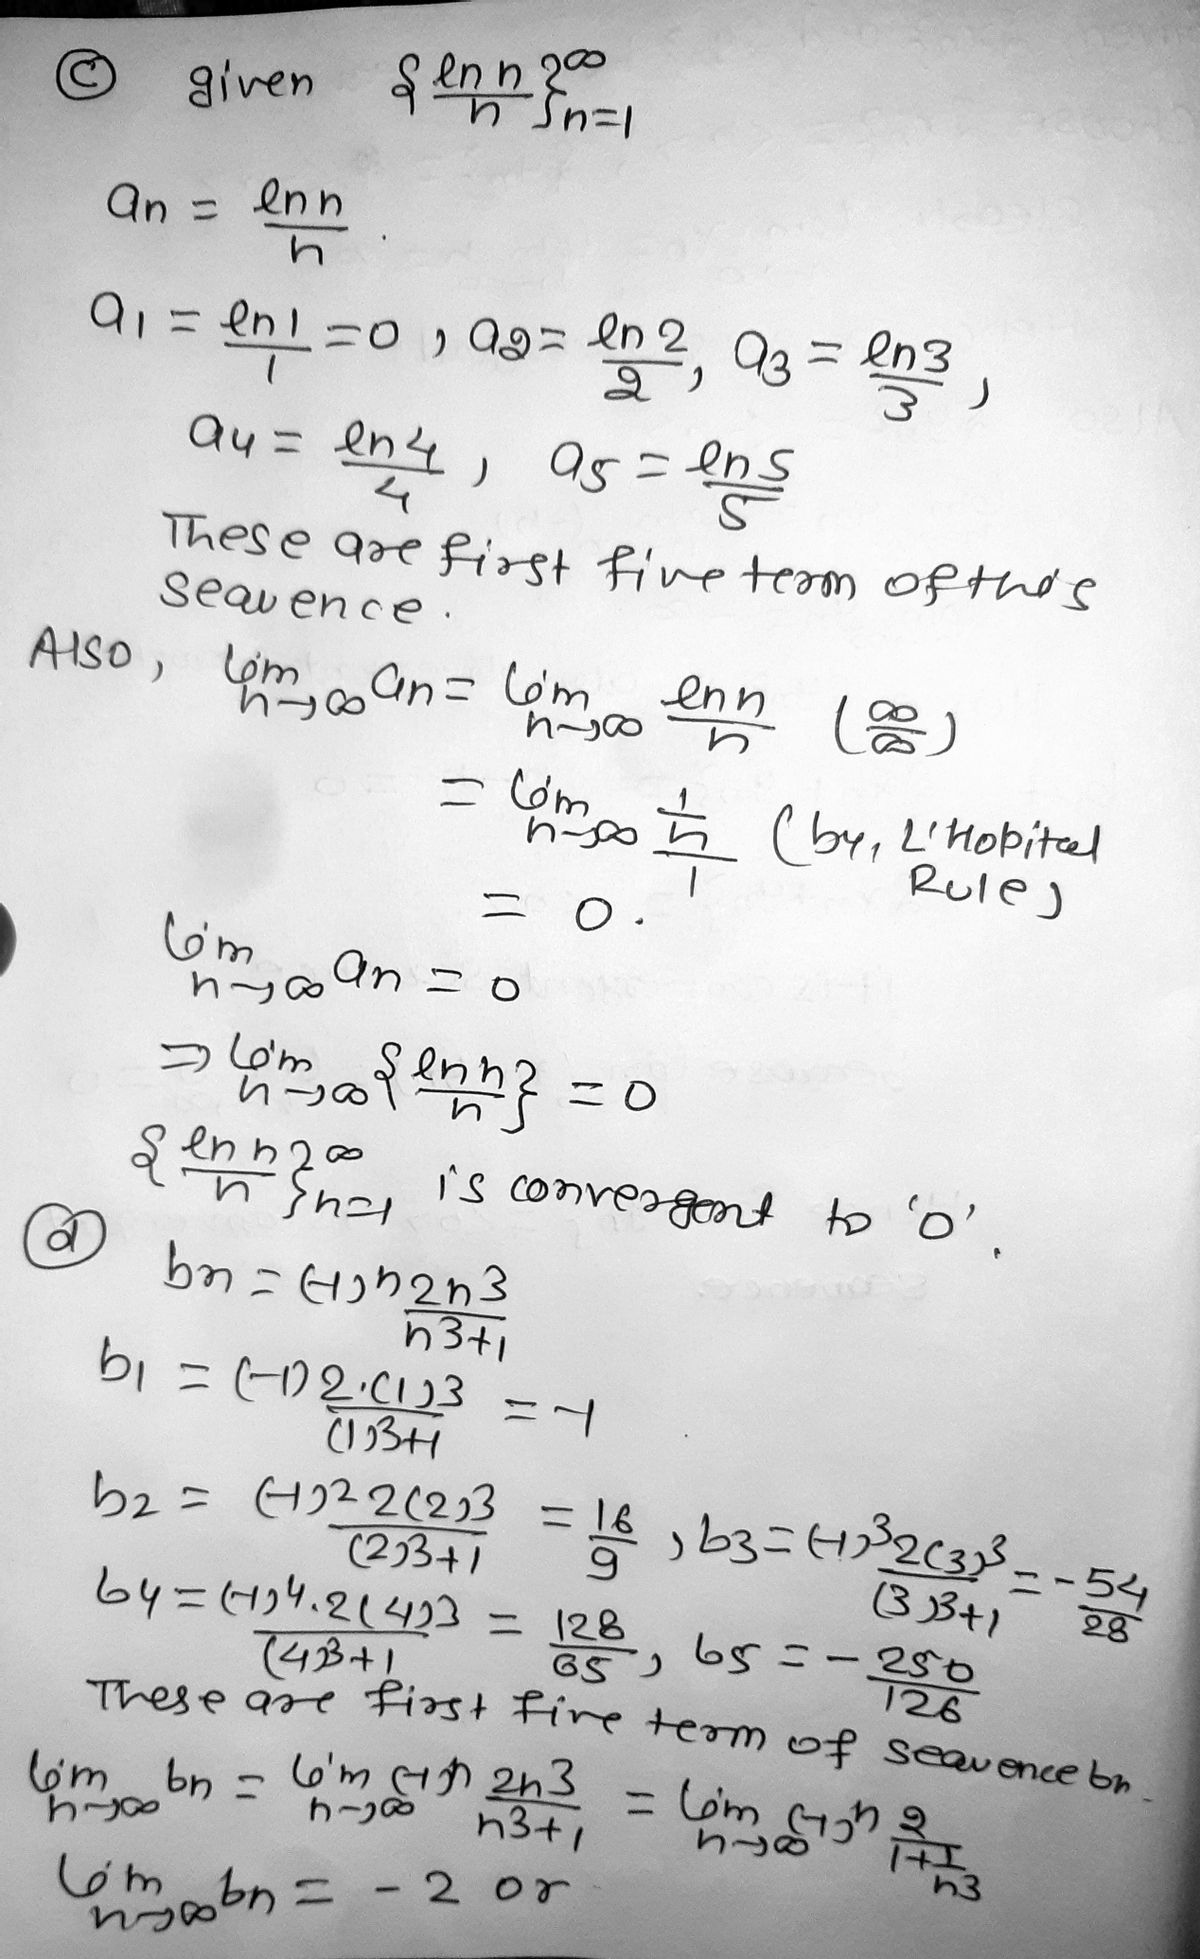 (c) given {ln n / n}∞ n=1
an = ln n / n .
a1 = ln 1 / 1 = 0 , a2 = ln 2 / 2 , a3 = ln 3 / 3 ,
a4 = ln 4 / 4 , a5 = ln 5 / 5
These are first five term of this
sequence .
Also , lim n→∞ an = lim n→∞ ln n / n (∞/∞)
= lim n→∞ (1/n) / 1 (by, L'Hopital
Rule)
= 0 .
lim n→∞ an = 0
⇒ lim n→∞ {ln n / n} = 0
{ln n / n}∞ n=1 is convergent to '0'.
(d)
bn = (-1)^n 2n^3 / n^3+1
b1 = (-1) 2·(1)^3 / (1)^3+1 = -1
b2 = (-1)^2 2(2)^3 / (2)^3+1 = 16/9 , b3 = (-1)^3 2(3)^3 / (3)^3+1 = -54/28
b4 = (-1)^4 . 2(4)^3 / (4)^3+1 = 128/65 , b5 = -250/126
These are first five term of sequence bn .
lim n→∞ bn = lim n→∞ (-1)^n 2n^3 / n^3+1 = lim n→∞ (-1)^n 2 / 1+1/n^3
lim n→∞ bn = -2 or